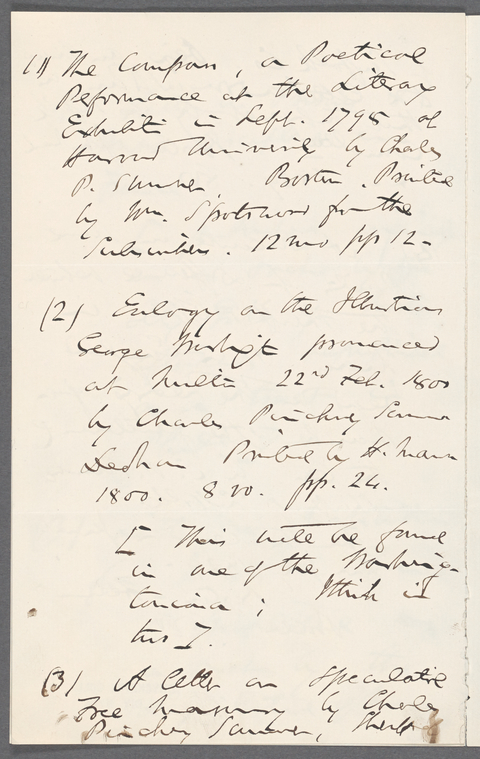 (1) The Compass, a Poetical
Peformance at the Literary
Exhibiti in Sept. 1795 of
Harvard University by Charles
P. Sumner. Boston. Printed
by Wm. Spotswood for the
Subscribers. 12mo pp 12-
(2) Eulogy on the Illustrious
George Washigt pronounced
at Milton 22nd Feb. 1800
by Charles Pinckney Sumner
Dedham Printed by H. Mann
1800. 8vo. pp. 24.
[ This will be found
in one of the Washing-
toniana; I think in
two ].
(3) A letter on Speculative
Free Masonry by Charles
Pinckney Sumner, Sheriff